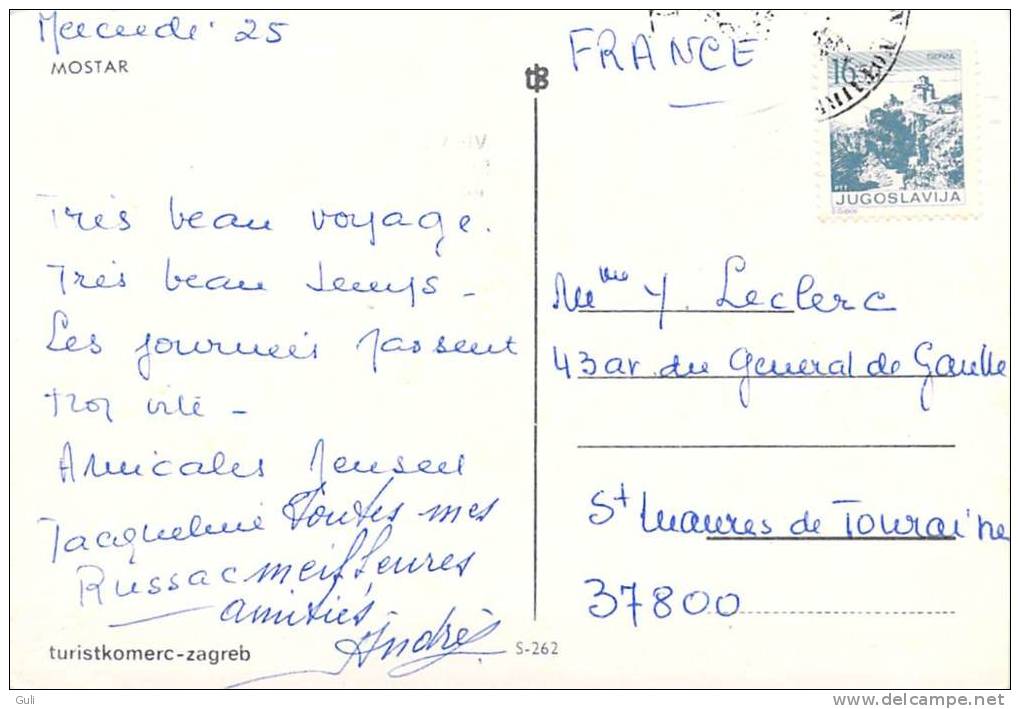 Mercredi 25
MOSTAR
Très beau voyage.
Très beau temps -
Les journées passent
trop vite -
Amicales pensées
Jacqueline
Russac
Toutes mes
meilleures
amitiés
André
turistkomerc-zagreb
S-262
FRANCE
16
PTT
JUGOSLAVIJA
Mme Y. Leclerc
43 av. du General de Gaulle
St Maures de Touraine
37800
Guli
delcampe.net